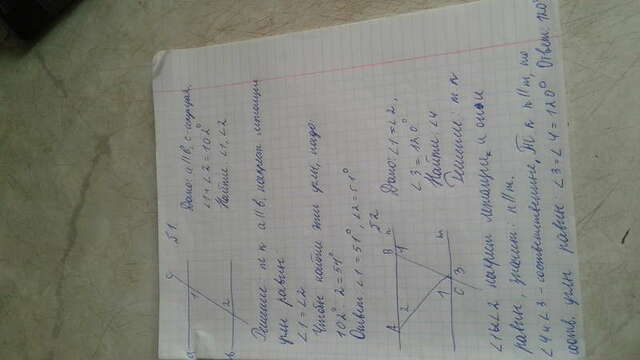 c
Б1
a
1
Дано: a || b, c - секущая,
∠1 + ∠2 = 102°
Найти: ∠1, ∠2
b
2
Решение: т к a || b, накрест лежащие
углы равны:
∠1 = ∠2
Чтобы найти эти углы, надо:
102° : 2 = 51°
Ответ: ∠1 = 51°, ∠2 = 51°
Б2
A
B
n
2
4
Дано: ∠1 = ∠2,
∠3 = 120°
Найти: ∠4
1
m
C
3
Решение: т к
∠1 и ∠2 накрест лежащие, и они
равны, значит: n || m.
∠4 и ∠3 - соответственные, Т к n || m, то
соотв. углы равны: ∠3 = ∠4 = 120° Ответ: 120°